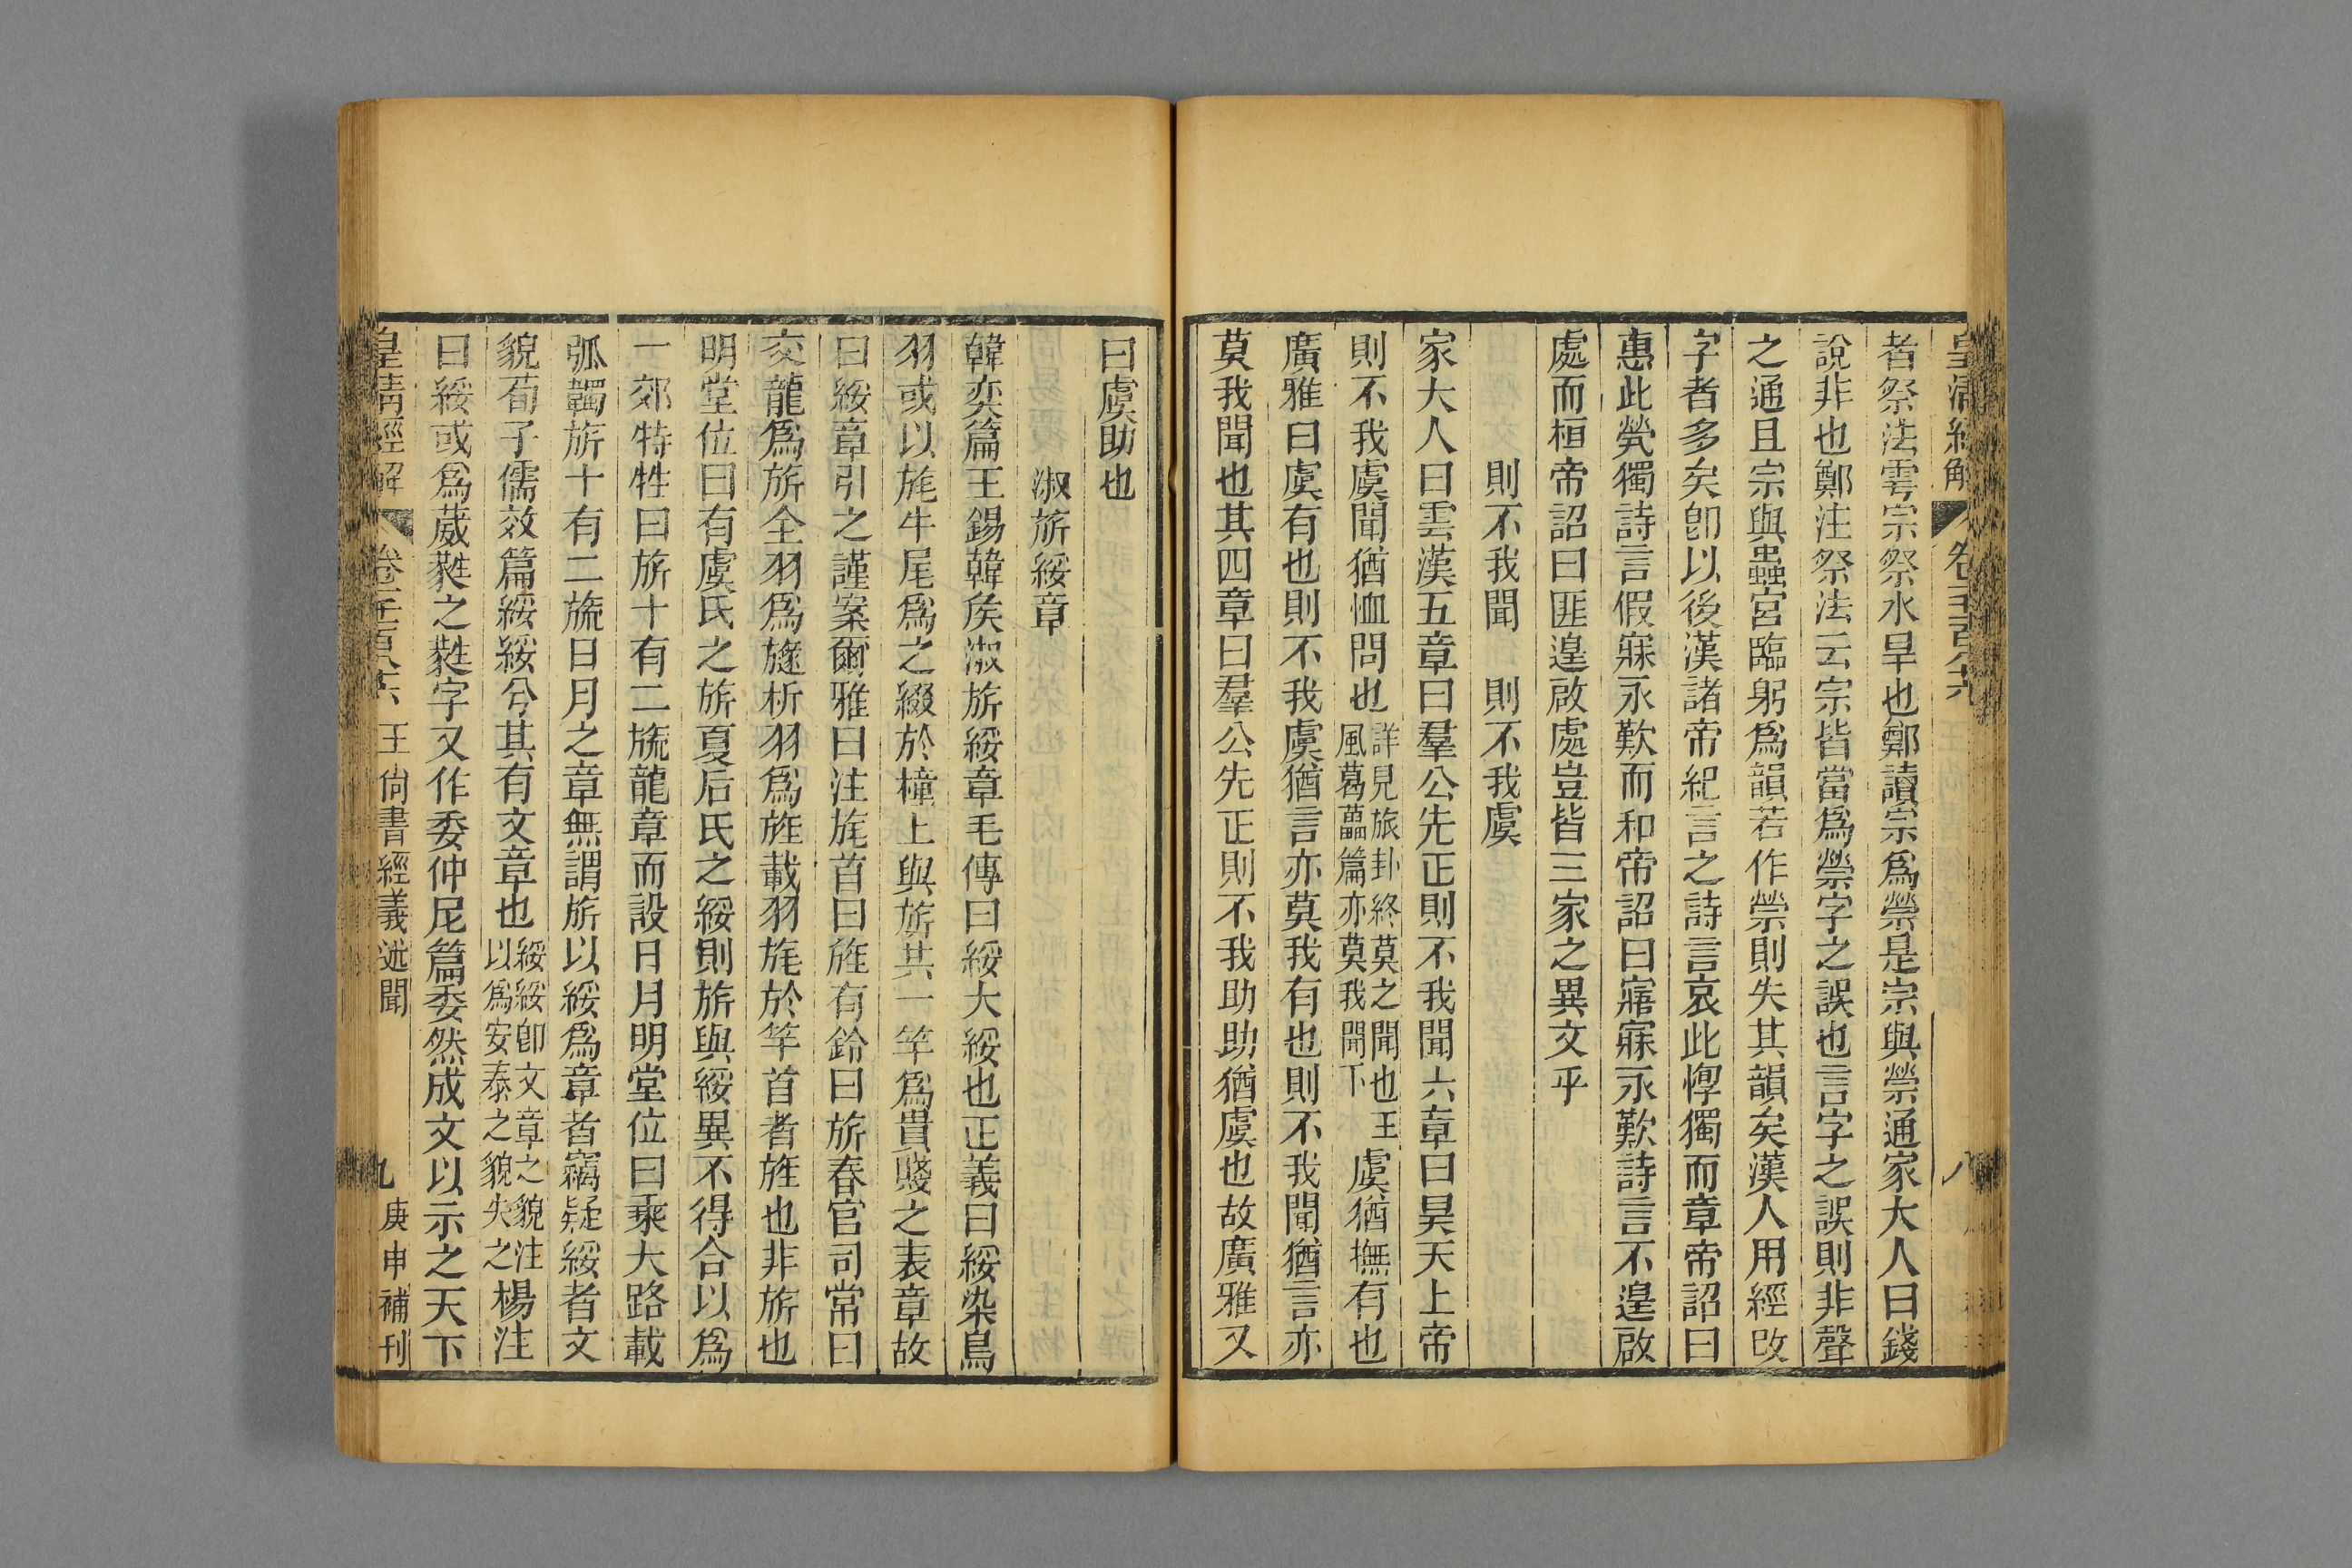 者祭法雩宗祭水旱也鄭讀宗爲禜是宗與禜通家大人曰錢
說非也鄭注祭法云宗皆當爲禜字之誤也言字之誤則非聲
之通且宗與蟲宮臨躬爲韻若作禜則失其韻矣漢人用經改
字者多矣卽以後漢諸帝紀言之詩言哀此惸獨而章帝詔曰
惠此煢獨詩言假寐永歎而和帝詔曰寤寐永歎詩言不遑啟
處而桓帝詔曰匪遑啟處豈皆三家之異文乎
則不我聞　則不我虞
家大人曰雲漢五章曰羣公先正則不我聞六章曰昊天上帝
則不我虞聞猶恤問也詳見旅卦終莫之聞也王風葛藟篇亦莫我聞下虞猶撫有也
廣雅曰虞有也則不我虞猶言亦莫我有也則不我聞猶言亦
莫我聞也其四章曰羣公先正則不我助助猶虞也故廣雅又
曰虞助也
淑旂綏章
韓奕篇王錫韓矦淑旂綏章毛傳曰綏大綏也正義曰綏染鳥
羽或以旄牛尾爲之綴於橦上與旂共一竿爲貴賤之表章故
曰綏章引之謹案爾雅曰注旄首曰旌有鈴曰旂春官司常曰
交龍爲旂全羽爲旞析羽爲旌載羽旄於竿首者旌也非旂也
明堂位曰有虞氏之旂夏后氏之綏則旂與綏異不得合以爲
一郊特牲曰旂十有二旒龍章而設日月明堂位曰乘大路載
弧韣旂十有二旒日月之章無謂旂以綏爲章者竊疑綏者文
貌荀子儒效篇綏綏兮其有文章也綏綏卽文章之貌注以爲安泰之貌失之楊注
曰綏或爲葳蕤之蕤字又作委仲尼篇委然成文以示之天下
皇清經解　卷千百八六　王尙書經義述聞　九　庚申補刊